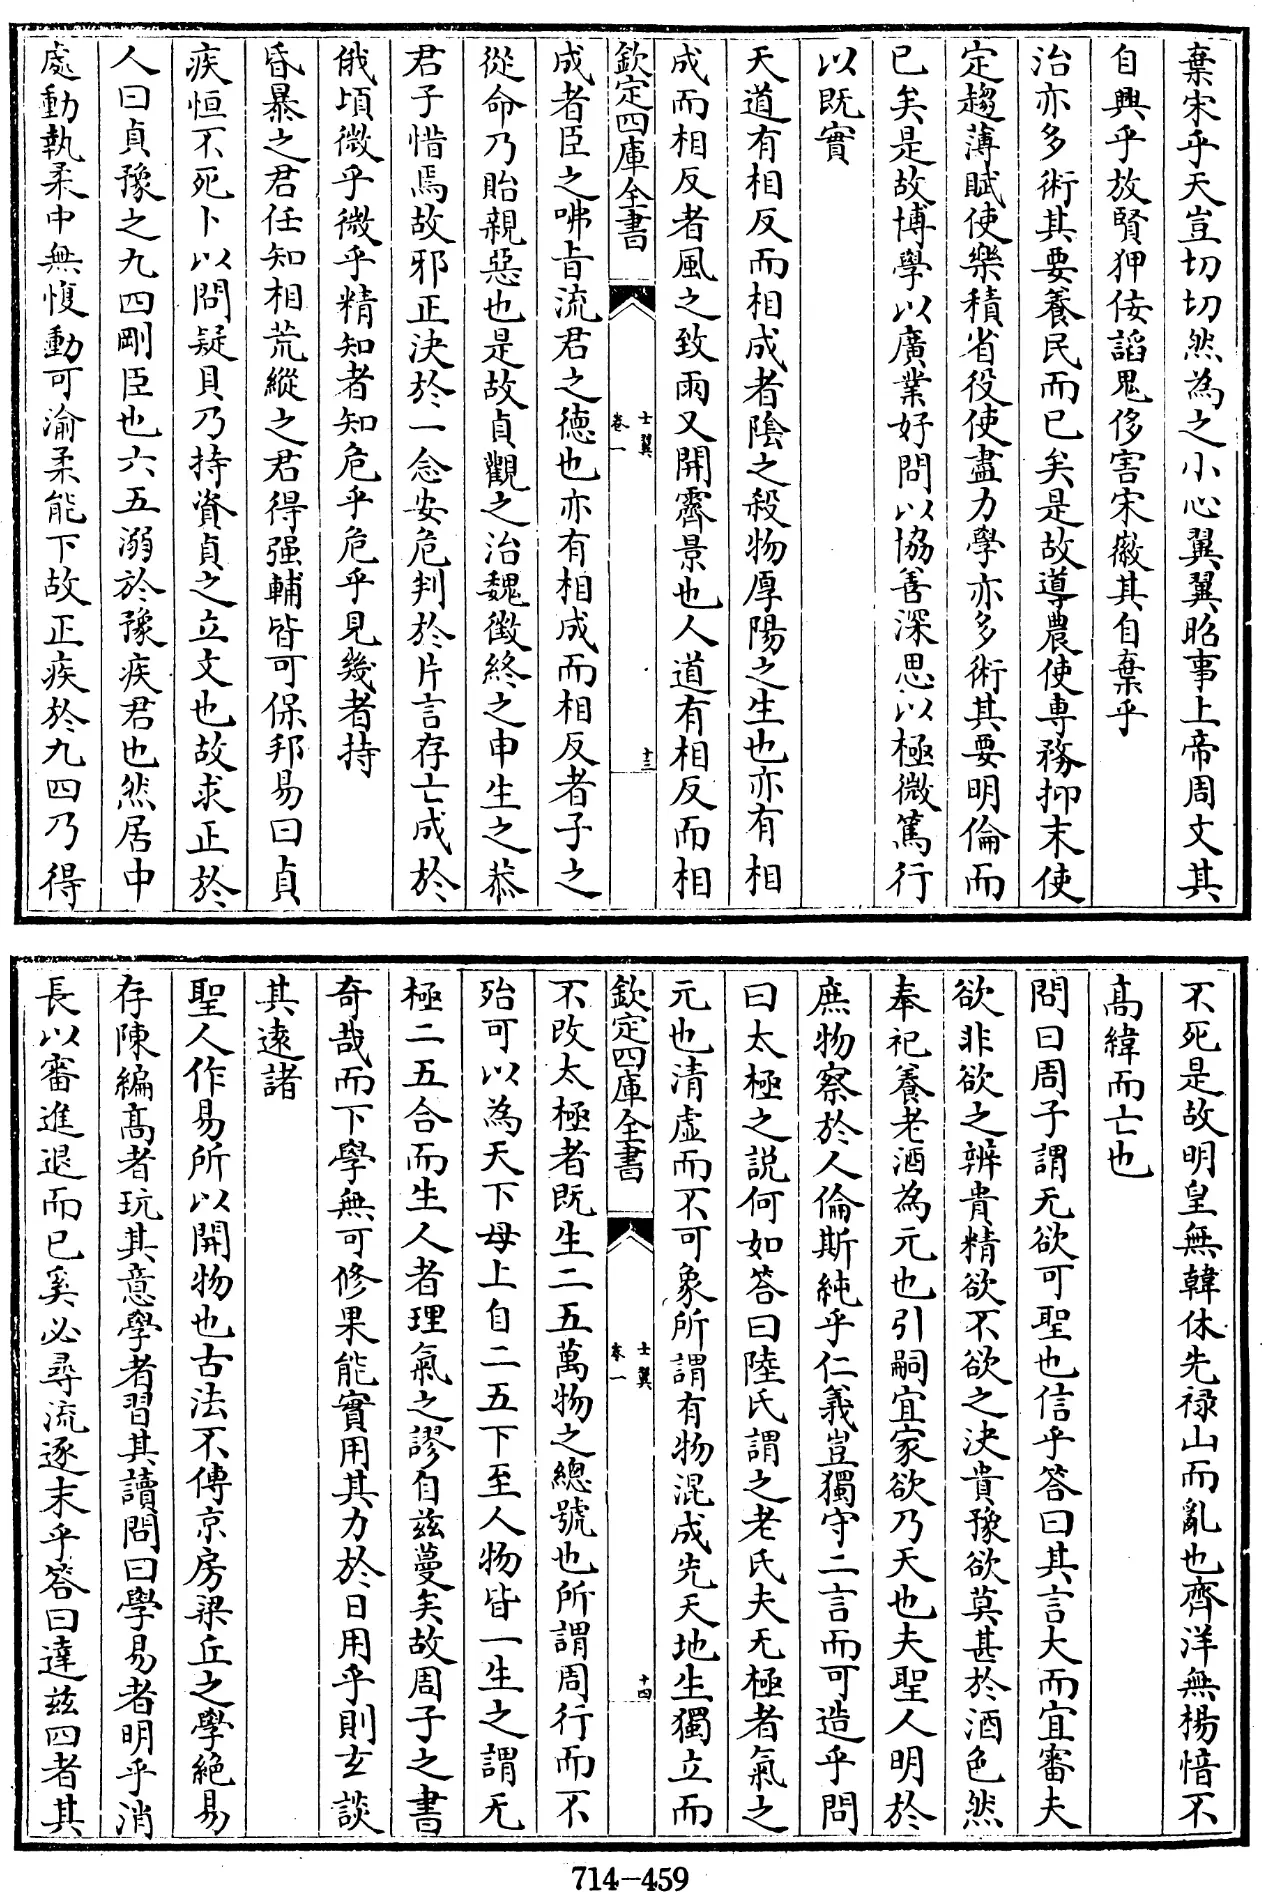 棄宋乎天豈切切然為之小心翼翼昭事上帝周文其
自興乎放賢狎佞諂鬼侈害宋徽其自棄乎
治亦多術其要養民而已矣是故導農使専務抑末使
定趨薄賦使樂積省役使盡力學亦多術其要明倫而
已矣是故博學以廣業好問以協善深思以極微篤行
以既實
天道有相反而相成者陰之殺物厚陽之生也亦有相
成而相反者風之致雨又開霽景也人道有相反而相
欽定四庫全書
士翼
卷一
十三
成者臣之咈旨流君之德也亦有相成而相反者子之
從命乃貽親惡也是故貞觀之治魏徵終之申生之恭
君子惜焉故邪正決於一念安危判於片言存亡成於
俄頃微乎微乎精知者知危乎危乎見幾者持
昏暴之君任知相荒縱之君得强輔皆可保邦易曰貞
疾恒不死卜以問疑貝乃持資貞之立文也故求正於
人曰貞豫之九四剛臣也六五溺於豫疾君也然居中
處動執柔中無愎動可渝柔能下故正疾於九四乃得
不死是故明皇無韓休先禄山而亂也齊洋無楊愔不
髙緯而亡也
問曰周子謂无欲可聖也信乎答曰其言大而宜審夫
欲非欲之辨貴精欲不欲之決貴豫欲莫甚於酒色然
奉祀養老酒為元也引嗣宜家欲乃天也夫聖人明於
庶物察於人倫斯純乎仁義豈獨守二言而可造乎問
曰太極之説何如答曰陸氏謂之老氏夫无極者氣之
元也清虚而不可象所謂有物混成先天地生獨立而
欽定四庫全書
士翼
卷一
十四
不改太極者既生二五萬物之總號也所謂周行而不
殆可以為天下母上自二五下至人物皆一生之謂无
極二五合而生人者理氣之謬自兹蔓矣故周子之書
奇哉而下學無可修果能實用其力於日用乎則玄談
其逺諸
聖人作易所以開物也古法不傳京房梁丘之學絶易
存陳編髙者玩其意學者習其讀問曰學易者明乎消
長以審進退而已奚必尋流逐末乎答曰達兹四者其
714-459